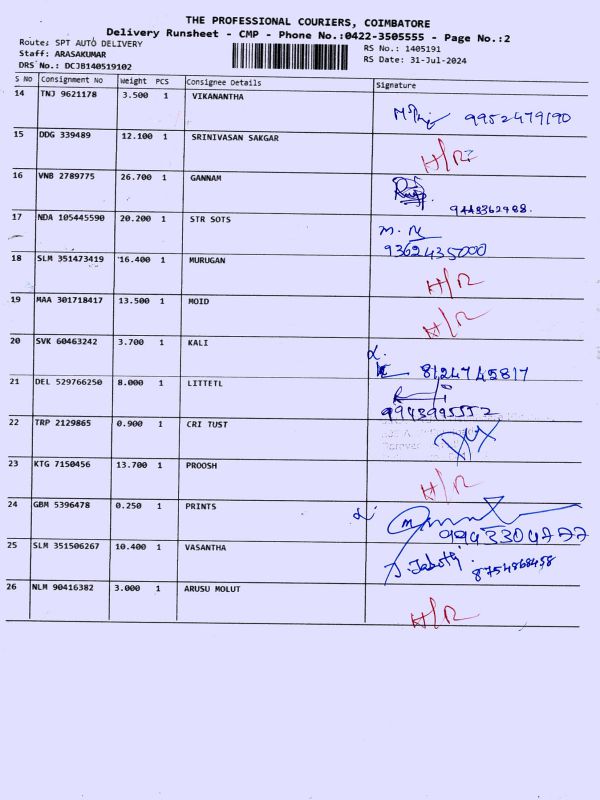 THE PROFESSIONAL COURIERS, COIMBATORE
Delivery Runsheet - CMP - Phone No.:0422-3505555 - Page No.:2
Route: SPT AUTO DELIVERY
RS No.: 1405191
Staff: ARASAKUMAR
RS Date: 31-Jul-2024
DRS No.: DCJB140519102
S NO Consignment No Weight PCS Consignee Details Signature
14 TNJ 9621178 3.500 1 VIKANANTHA
9952479190
15 DDG 339489 12.100 1 SRINIVASAN SAKGAR
H/R
16 VNB 2789775 26.700 1 GANNAM
9443362988.
17 NDA 105445590 20.200 1 STR SOTS
9362435000
18 SLM 351473419 16.400 1 MURUGAN
H/R
19 MAA 301718417 13.500 1 MOID
H/R
20 SVK 60463242 3.700 1 KALI
8124745817
21 DEL 529766250 8.000 1 LITTETL
9943995552
22 TRP 2129865 0.900 1 CRI TUST
23 KTG 7150456 13.700 1 PROOSH
H/R
24 GBM 5396478 0.250 1 PRINTS
25 SLM 351506267 10.400 1 VASANTHA
8754868458
26 NLM 90416382 3.000 1 ARUSU MOLUT
H/R